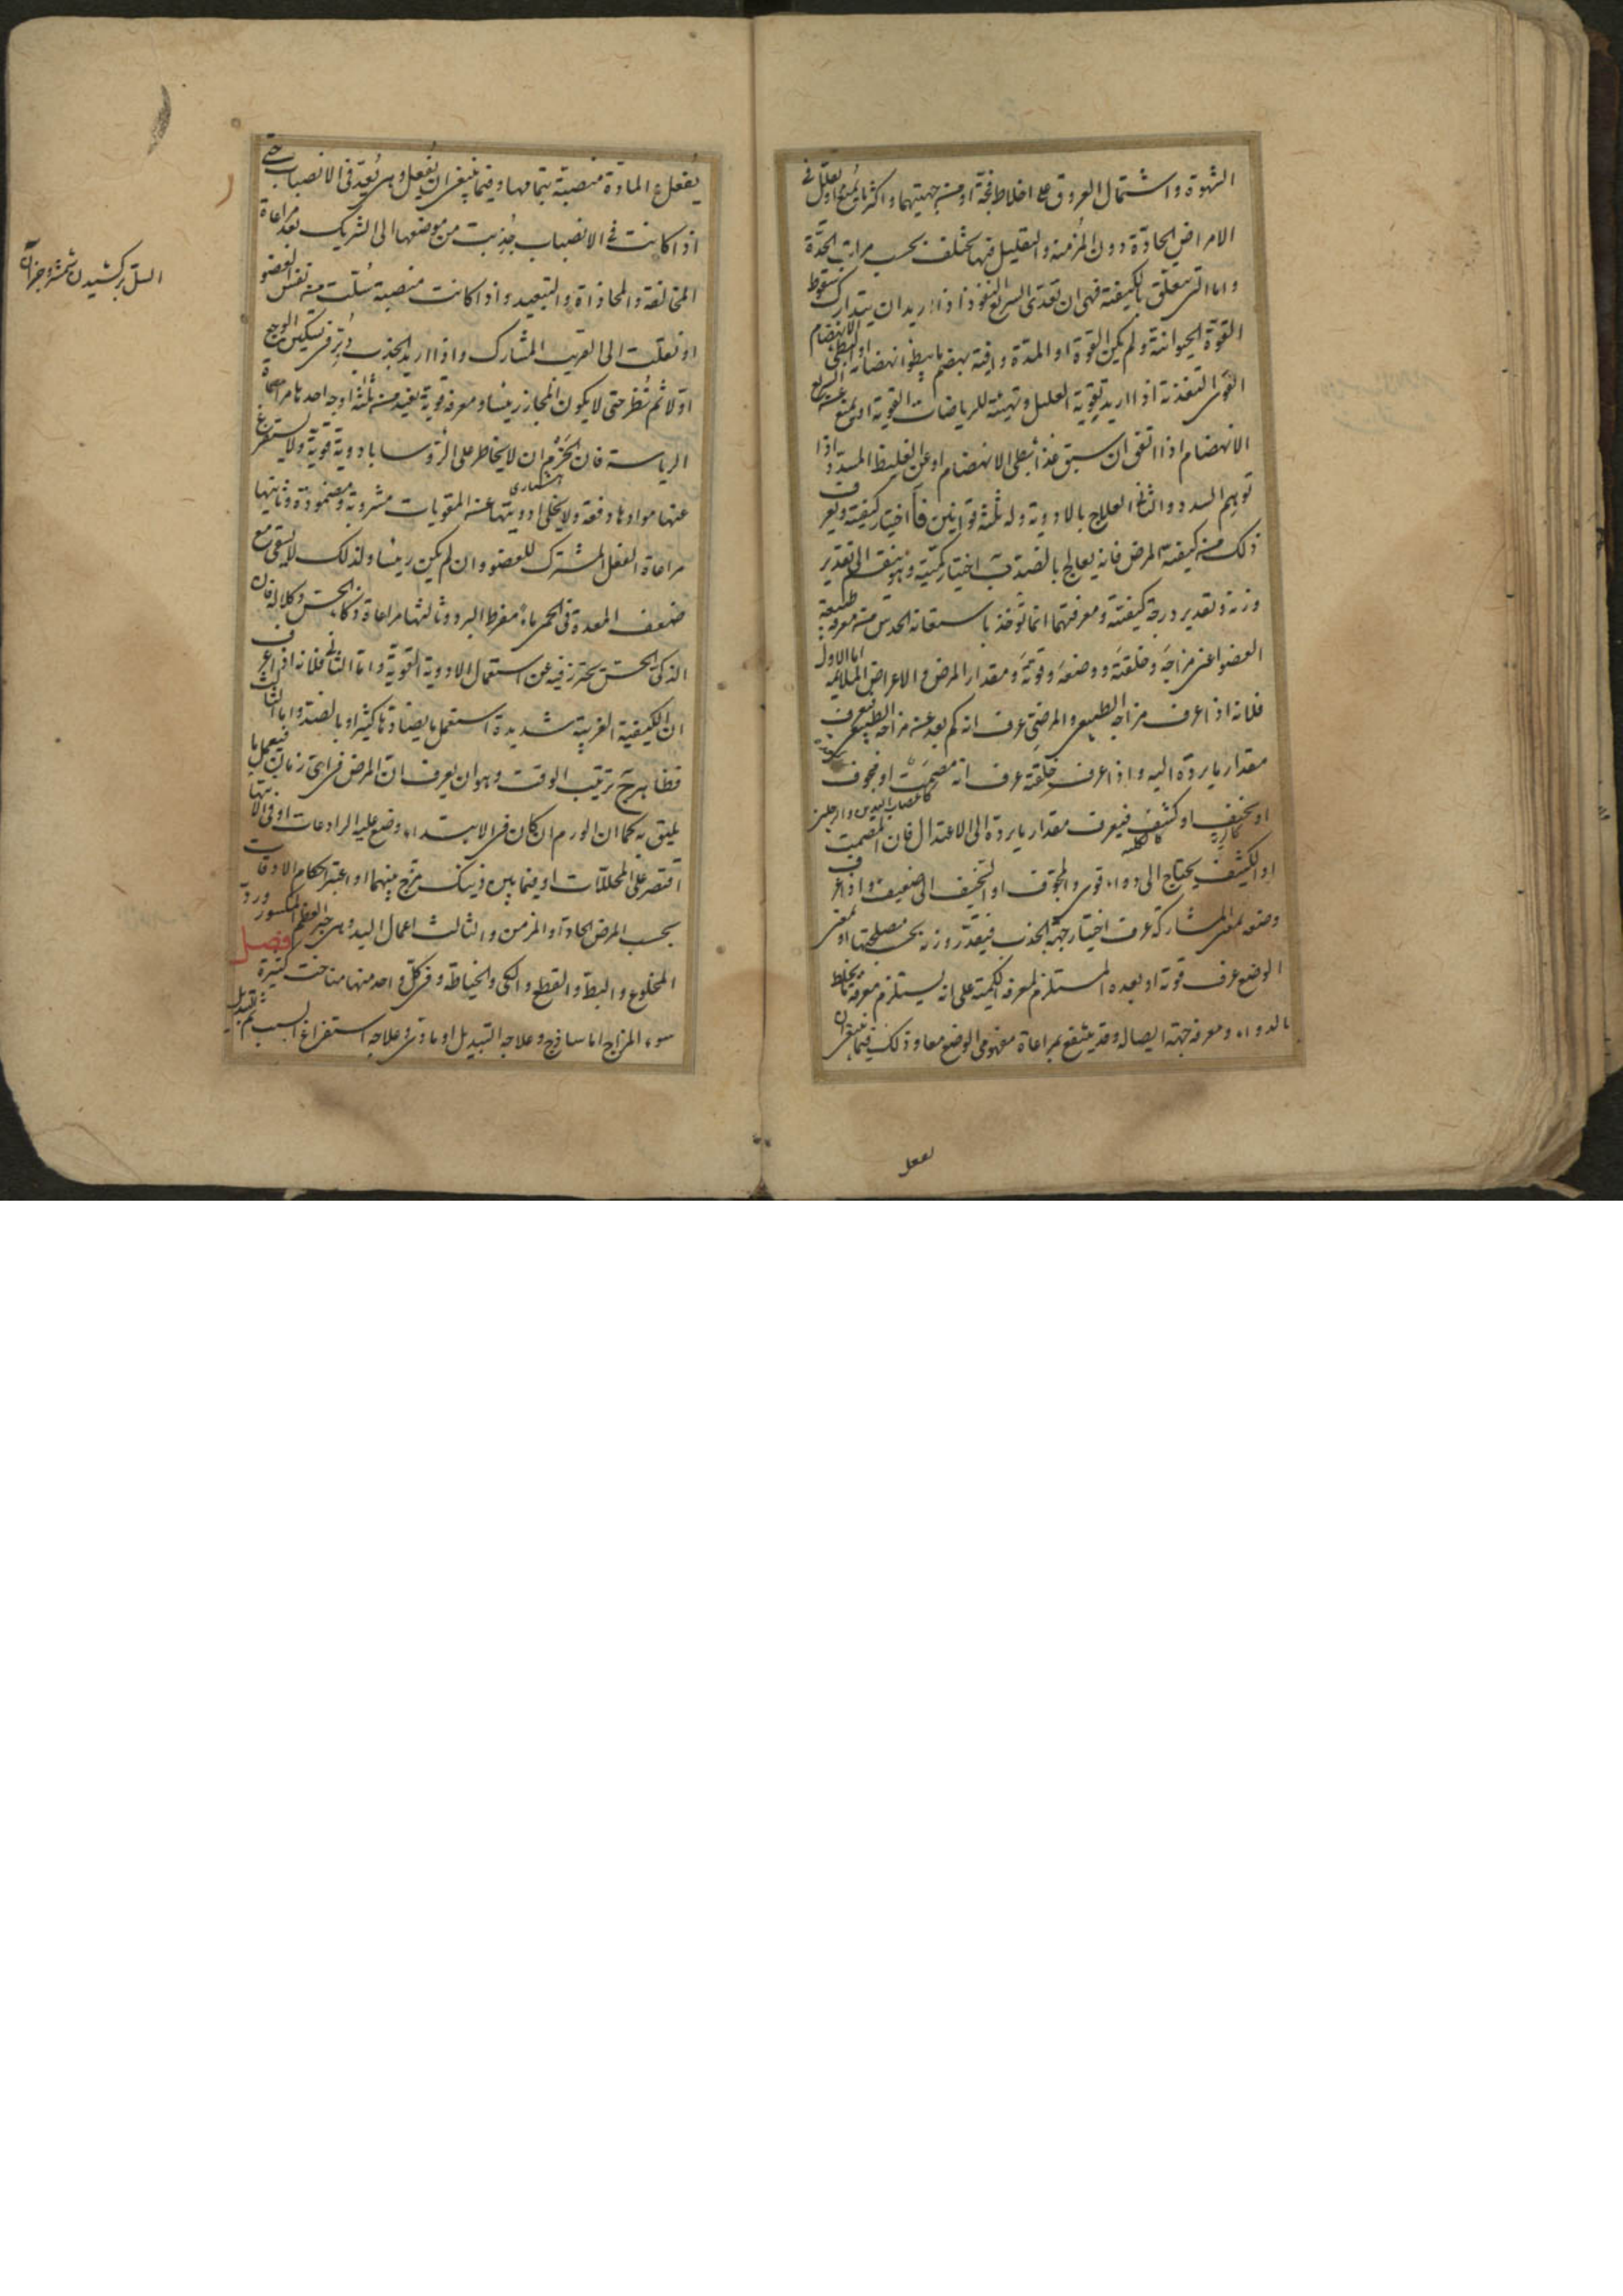 الشهوة واشتمال العروق على اخلاط فجة او من جهتيهما واكثر ما يُمنع او يقلل في
الامراض الحادّة دون المزمنة والتقليل فيها يختلف بحسب مراتب الحدّة
واما التى تتعلق بالكيفية فهى ان تغذى السريع النفوذ اذا اريد ان يتدارك سقوط
القوّة الحيوانية ولم يكن القوة او المدّة وافية بهضم ما يبطؤ انهضامه او البطى الانهضام
القوى التغذية اذا اريد تقوية العليل وتهيئة للرياضات القوية او يمنع عن السريع
الانهضام اذا اتفق ان سبق غذا بطى الانهضام او عن الغليظ المسدّد اذا
توهم السدد والثانى العلاج بالادوية وله ثلثة قوانين آ اختيار كيفيته ويعرف
ذلك من كيفية المرض فانه يعالج بالضد ب اختيار كمّيته وهو ينقسم الى تقدير
وزنه وتقدير درجة كيفيته ومعرفتهما انما تؤخذ باستعانة الحدس من معرفة طبيعة
العضو اعنى مزاجه وخلقته ووضعه وقوته ومقدار المرض و الاعراض الملائمة اما الاول
فلانه اذا عرف مزاجه الطبيعى والمرضى عرف انه كم بعد عن مزاجه الطبيعى فيعرف
مقدار ما يردّه اليه واذا عرف خلقته عرف انه مصمت او مجوف
كاعصاب اليدين والرجلين
او سخيف او كثيف فيعرف مقدار ما يردّه الى الاعتدال فان المصمت
كالرية كالكلية
او الكثيف يحتاج الى دواء قوى والمجوّف او السخيف الى ضعيف واذا عرف
وضعه لمعنى المشاركة عرف اختيار جهة الجذب فيقدّر وزنه بحسب مصلحتها او لمعنى
الوضع عرف قوته او بعده المستلزم لمعرفة الكمية على انه يستلزم معرفة ما يخلط
بالدواء ومعرفة جهة ايصاله وقد ينتفع بمراعاة مفهومى الوضع معا وذلك فيما ينبغى ان
يفعل
يُفعل و المادة منصبة بتمامها وفيما ينبغى ان يُفعل وهى بُعد فى الانصباب حتى
اذا كانت فى الانصباب جُذبت من موضعها الى الشريك بعد مراعاة
المخالفة والمحاذاة والتبعيد واذا كانت منصبة سُلّت من نفس العضو
او نقلت الى القريب المشارك واذا اريد الجذب دُبّر فى تسكين الوجع
اوّلا ثم نُظر حتى لا يكون المجاز رئيسا ومعرفة قوته يفيد من ثلثة اوجه احدها مراعاة
الرياسة فان الحَزم ان لا يخاطر على الرؤسا بادوية قوية ولا يستفرغ
عنها موادها دفعة ولا يخلى ادويتها عن المقويات مشروبة ومضمودة وثانيتها
مراعاة الفعل المشترك للعضو وان لم يكن رئيسا ولذلك لا يسقى مع
ضعف المعدة فى الحمى ماء مفرط البرد وثالثها مراعاة ذكاء الحس وكلاله فان
الذكى الحسّ يحترز فيه عن استعمال الادوية القوية واما الثانى فلانه اذا عرف
ان الكيفية الغريبة شديدة استعمل ما يضادّها كثيرا وبالضد واما الثالث
فظاهر ج ترتيب الوقت وهو ان يعرف ان المرض فى اى زمان فيعمل ما
يليق به كما ان الورم ان كان فى الابتداء وضع عليه الرادعات او فى الانتهاء
اقتصر على المحللات او فيما بين ذينك مزج بينهما او اعتبر احكام الاوقات
بحسب المرض الحاد او المزمن والثالث اعمال اليد وهى جبر العظم المكسور وردّ
المخلوع والبط والقطع والكى والخياطة وفى كل واحد منها مباحث كثيرة فصل
سوء المزاج اما ساذج وعلاجه التبديل او مادى وعلاجه استفراغ السبب ثم تبديل
السلّ بركشيدن شمشير وجز آن